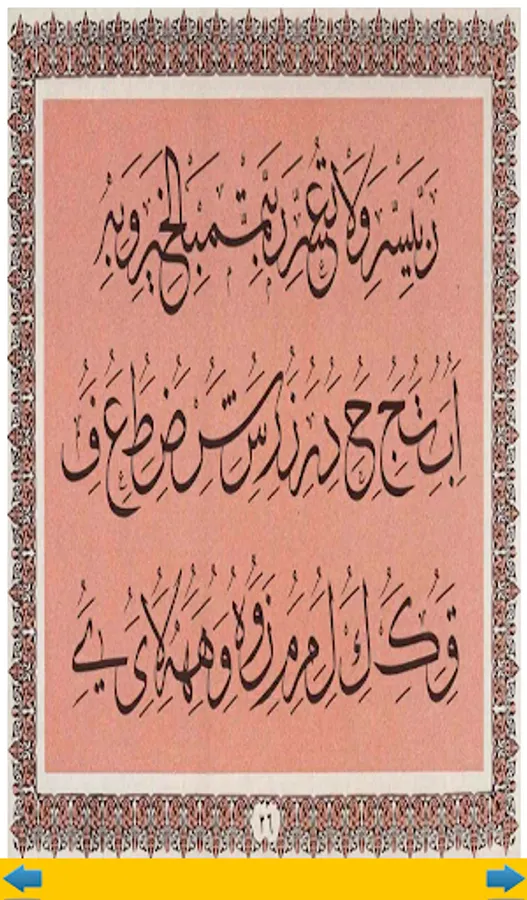 رَبِّ يَسِّرْ وَلَا تُعَسِّرْ رَبِّ تَمِّمْ بِالْخَيْرِ وَبِهِ
ا ب ث ج ح د ر ز س ش ض ط ع ف
ق ك ل م و ه لا ى ي
٢٦